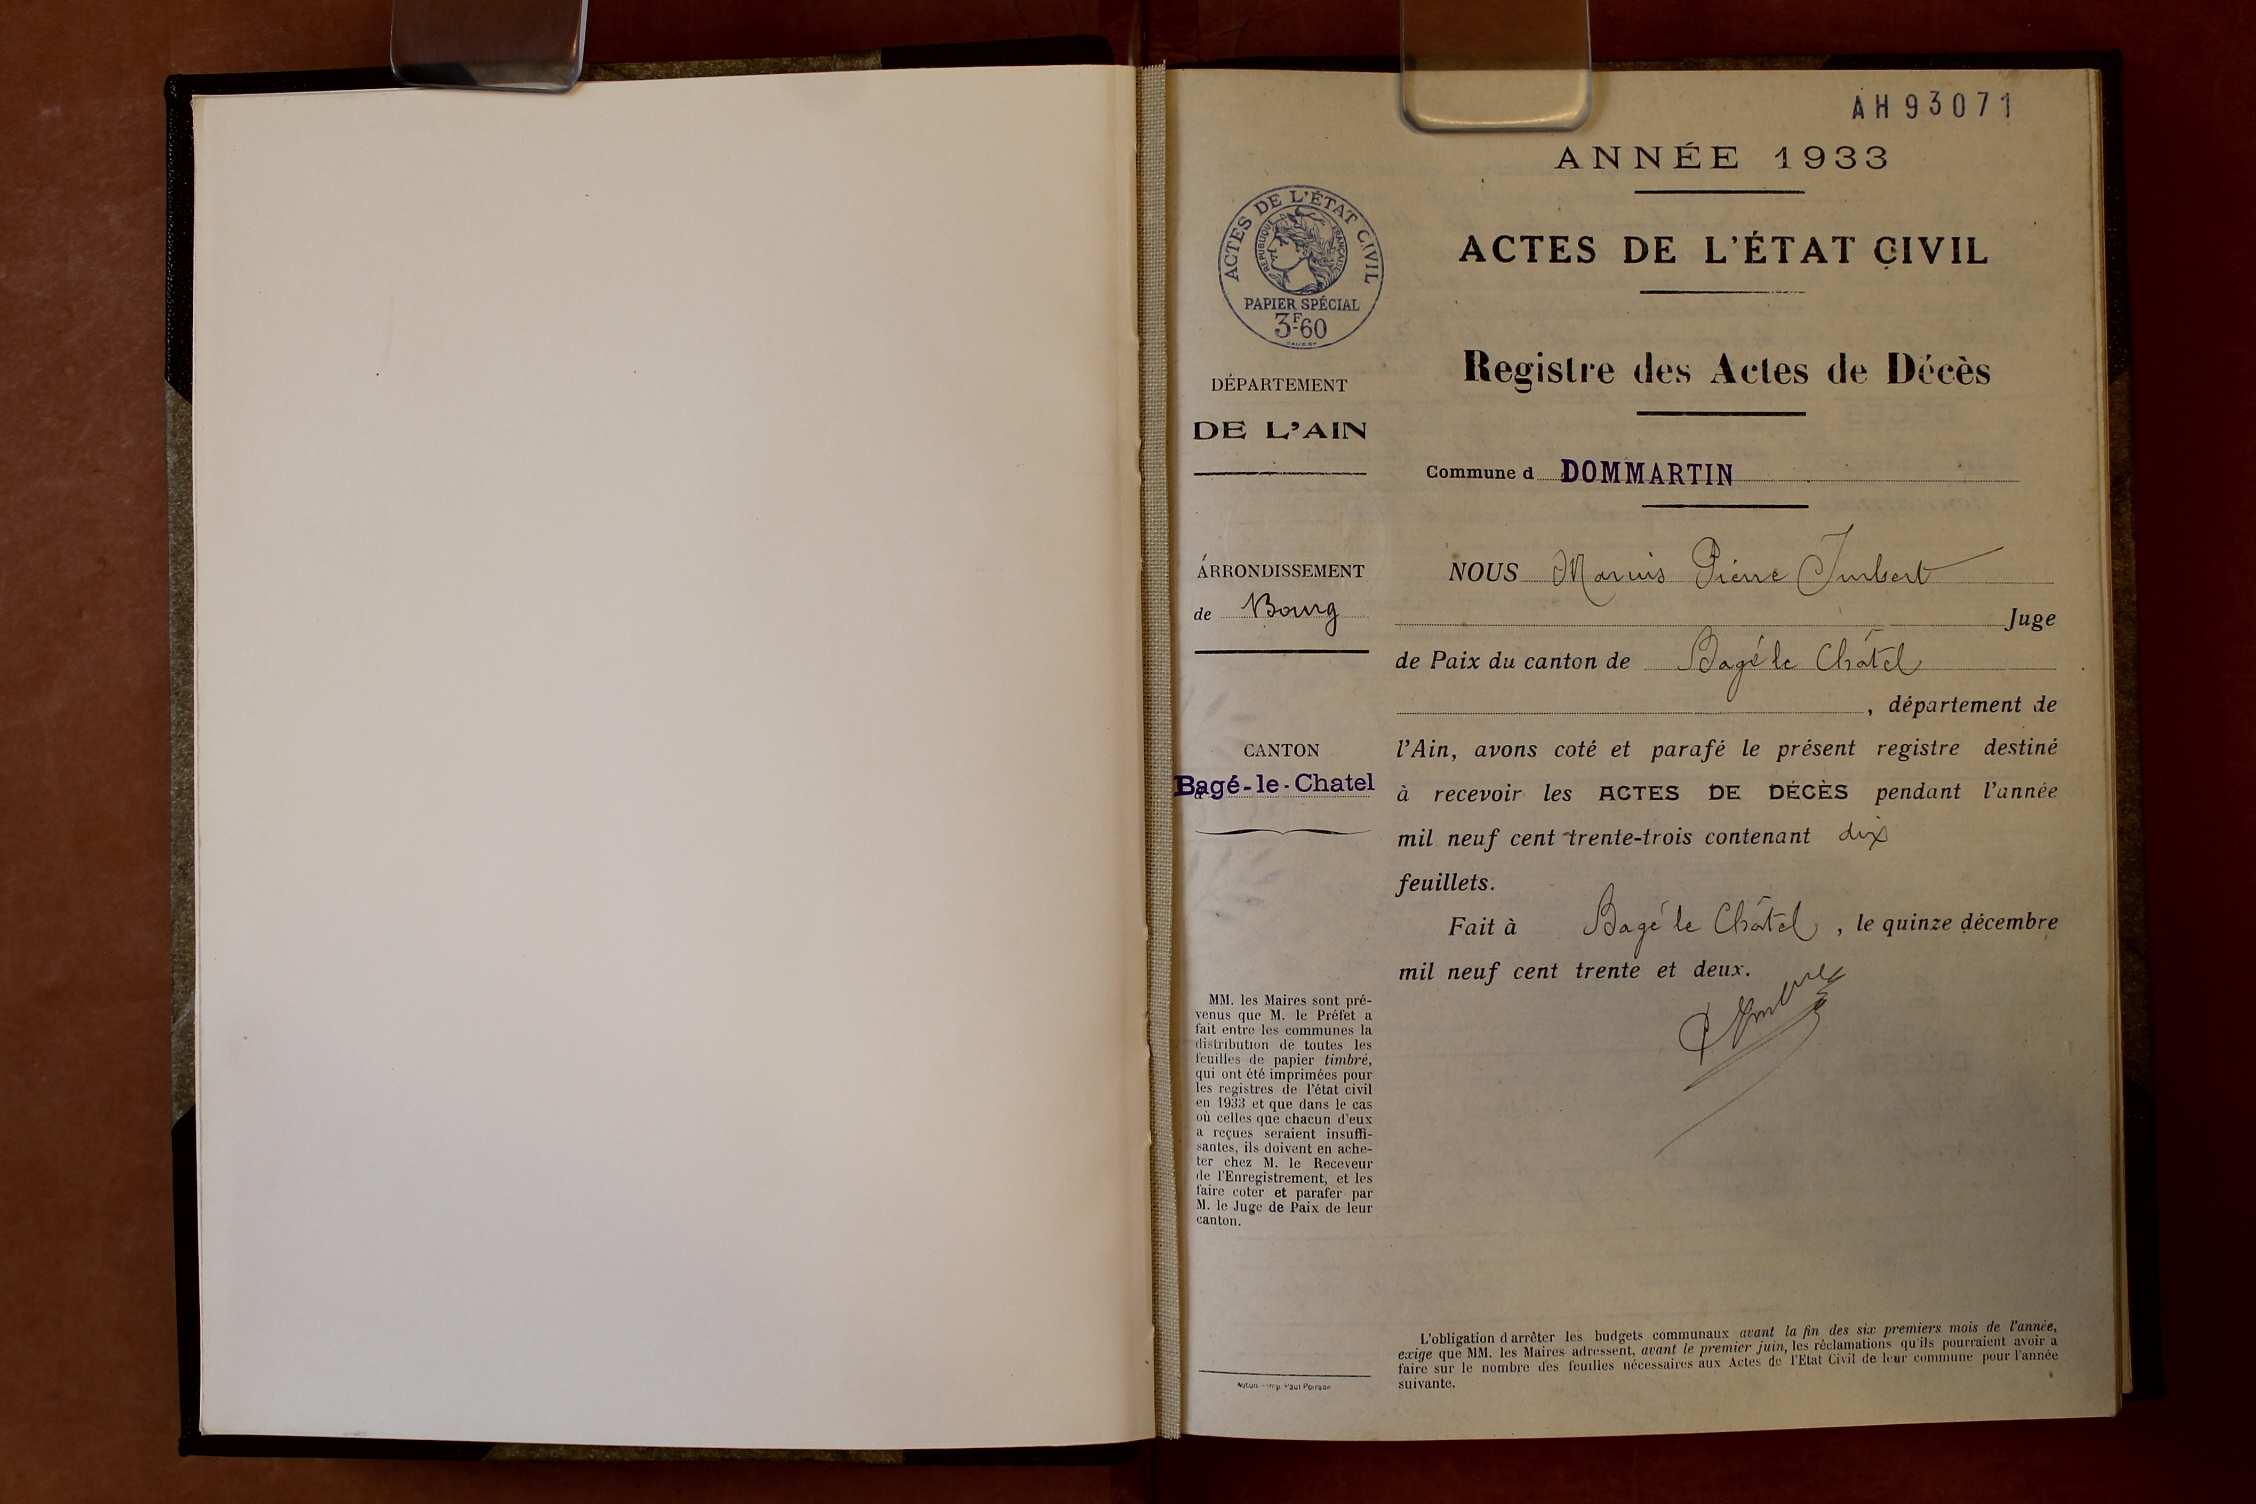 AH93071
ANNÉE 1933
ACTES DE L'ÉTAT CIVIL
RÉPUBLIQUE FRANÇAISE
PAPIER SPÉCIAL
3F60
ACTES DE L'ÉTAT CIVIL
Registre des Actes de Décès
DÉPARTEMENT
DE L'AIN
Commune d DOMMARTIN
ARRONDISSEMENT
de Bourg
CANTON
Bagé-le-Chatel
MM. les Maires sont pré-
venus que M. le Préfet a
fait entre les communes la
distribution de toutes les
feuilles de papier timbré,
qui ont été imprimées pour
les registres de l'état civil
en 1933 et que dans le cas
où celles que chacun d'eux
a reçues seraient insuffi-
santes, ils doivent en ache-
ter chez M. le Receveur
de l'Enregistrement, et les
faire coter et parafer par
M. le Juge de Paix de leur
canton.
Autun - Imp. Paul
NOUS Marius Pierre Imbert
Juge
de Paix du canton de Bagé le Châtel
, département de
l'Ain, avons coté et parafé le présent registre destiné
à recevoir les ACTES DE DÉCÈS pendant l'année
mil neuf cent trente-trois contenant dix
feuillets.
Fait à Bagé le Châtel, le quinze décembre
mil neuf cent trente et deux.
L'obligation d'arrêter les budgets communaux avant la fin des six premiers mois de l'année,
exige que MM. les Maires adressent, avant le premier juin, les réclamations qu'ils pourraient avoir à
faire sur le nombre des feuilles nécessaires aux Actes de l'Etat Civil de leur commune pour l'année
suivante.